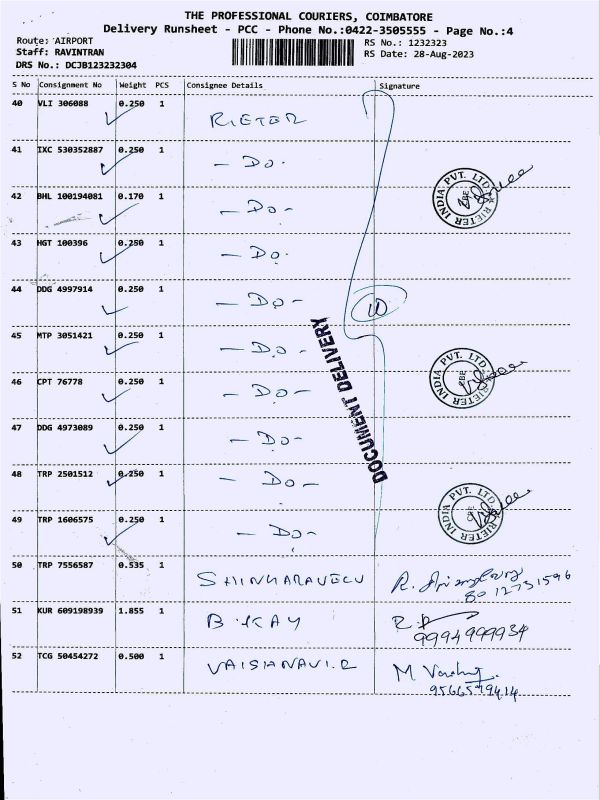 THE PROFESSIONAL COURIERS, COIMBATORE
Delivery Runsheet - PCC - Phone No.:0422-3505555 - Page No.:4
Route: AIRPORT
RS No.: 1232323
Staff: RAVINTRAN
RS Date: 28-Aug-2023
DRS No.: DCJB123232304
S No Consignment No Weight PCS Consignee Details Signature
40 VLI 306088 0.250 1 RIETER
41 IXC 530352887 0.250 1 - DO -
42 BHL 100194081 0.170 1 - DO -
43 HGT 100396 0.250 1 - DO -
44 DDG 4997914 0.250 1 - DO - 10
45 MTP 3051421 0.250 1 - DO -
46 CPT 76778 0.250 1 - DO -
47 DDG 4973089 0.250 1 - DO -
48 TRP 2501512 0.250 1 - DO -
49 TRP 1606575 0.250 1 - DO -
DOCUMENT DELIVERY
RIETER INDIA PVT. LTD.
RIETER INDIA PVT. LTD.
RIETER INDIA PVT. LTD.
50 TRP 7556587 0.535 1 SHINHARAVELU R.
8012731596
51 KUR 609198939 1.855 1 B. KAY R.
9994999934
52 TCG 50454272 0.500 1 VAISHNAVI.R M
9566579414